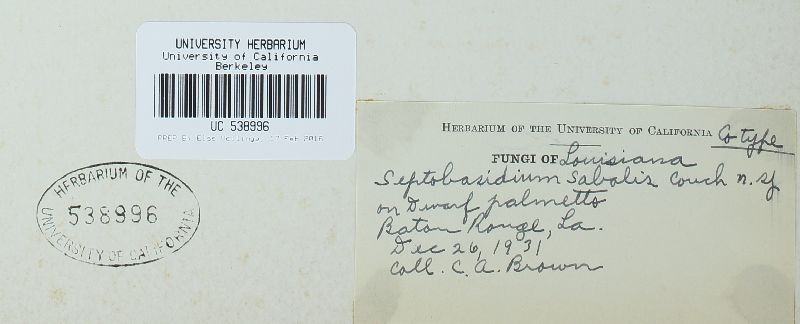 UNIVERSITY HERBARIUM
University of California
Berkeley
UC 538996
PREP By Else Vellinga, 17 Feb 2016
HERBARIUM OF THE
538996
UNIVERSITY OF CALIFORNIA
HERBARIUM OF THE UNIVERSITY OF CALIFORNIA Co type
FUNGI OF Louisiana
Septobasidium Sabalis Couch n. sp
on Dwarf palmetto
Baton Rouge, La.
Dec 26, 1931
Coll. C. A. Brown